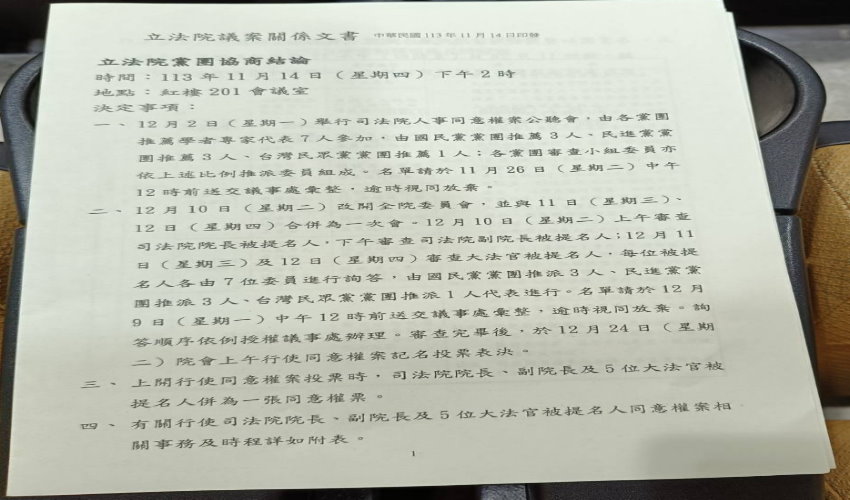 立法院議案關係文書 中華民國113年11月14日印發
立法院黨團協商結論
時間：113年11月14日（星期四）下午2時
地點：紅樓201會議室
決定事項：
一、12月2日（星期一）舉行司法院人事同意權案公聽會，由各黨團
推薦學者專家代表7人參加，由國民黨黨團推薦3人、民進黨黨
團推薦3人、台灣民眾黨黨團推薦1人；各黨團審查小組委員亦
依上述比例推派委員組成。名單請於11月26日（星期二）中午
12時前送交議事處彙整，逾時視同放棄。
二、12月10日（星期二）改開全院委員會，並與11日（星期三）、
12日（星期四）合併為一次會。12月10日（星期二）上午審查
司法院院長被提名人，下午審查司法院副院長被提名人；12月11
日（星期三）及12日（星期四）審查大法官被提名人，每位被提
名人各由7位委員進行詢答，由國民黨黨團推派3人、民進黨黨
團推派3人、台灣民眾黨黨團推派1人代表進行。名單請於12月
9日（星期一）中午12時前送交議事處彙整，逾時視同放棄。詢
答順序依例授權議事處辦理。審查完畢後，於12月24日（星期
二）院會上午行使同意權案記名投票表決。
三、上開行使同意權案投票時，司法院院長、副院長及5位大法官被
提名人併為一張同意權票。
四、有關行使司法院院長、副院長及5位大法官被提名人同意權案相
關事務及時程詳如附表。
1